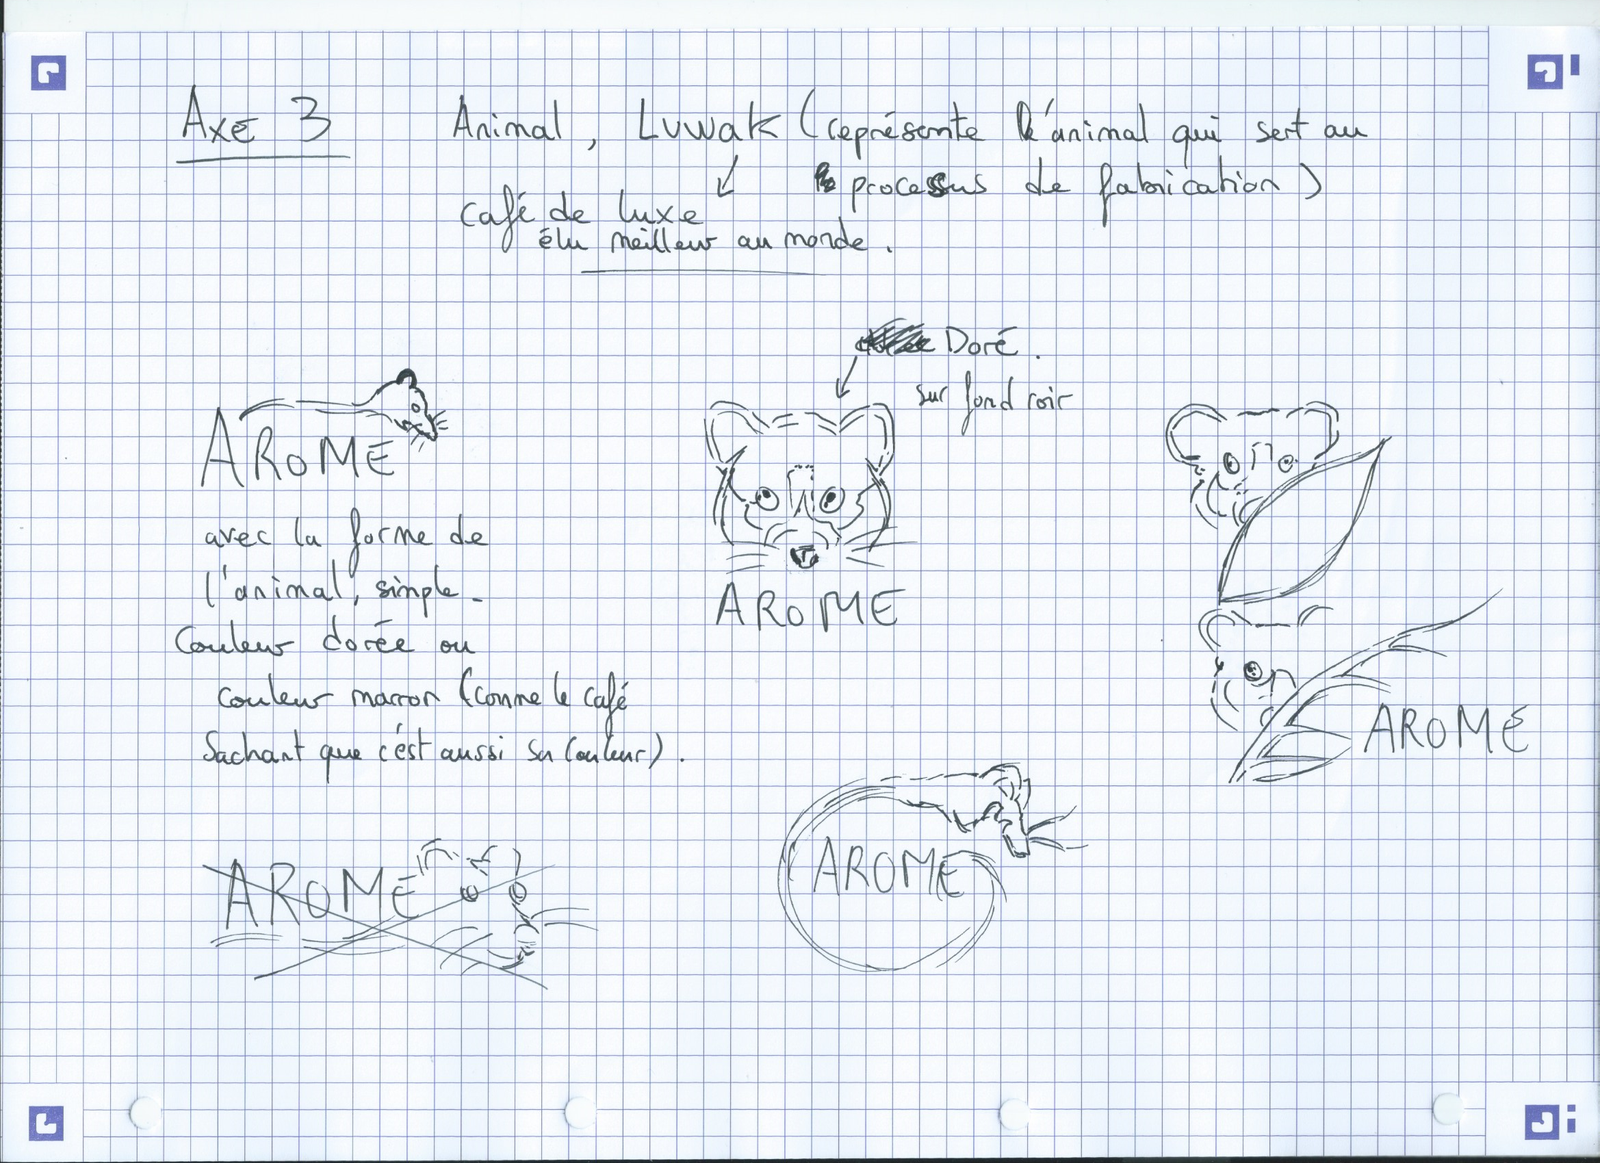 Axe 3
Animal, Luwak (représente l'animal qui sert au
processus de fabrication)
café de luxe
élu meilleur au monde.
Doré.
sur fond noir
AROME
avec la forme de
l'animal, simple.
Couleur dorée ou
couleur marron (comme le café
Sachant que c'est aussi sa couleur).
AROME
AROME
AROME
AROME